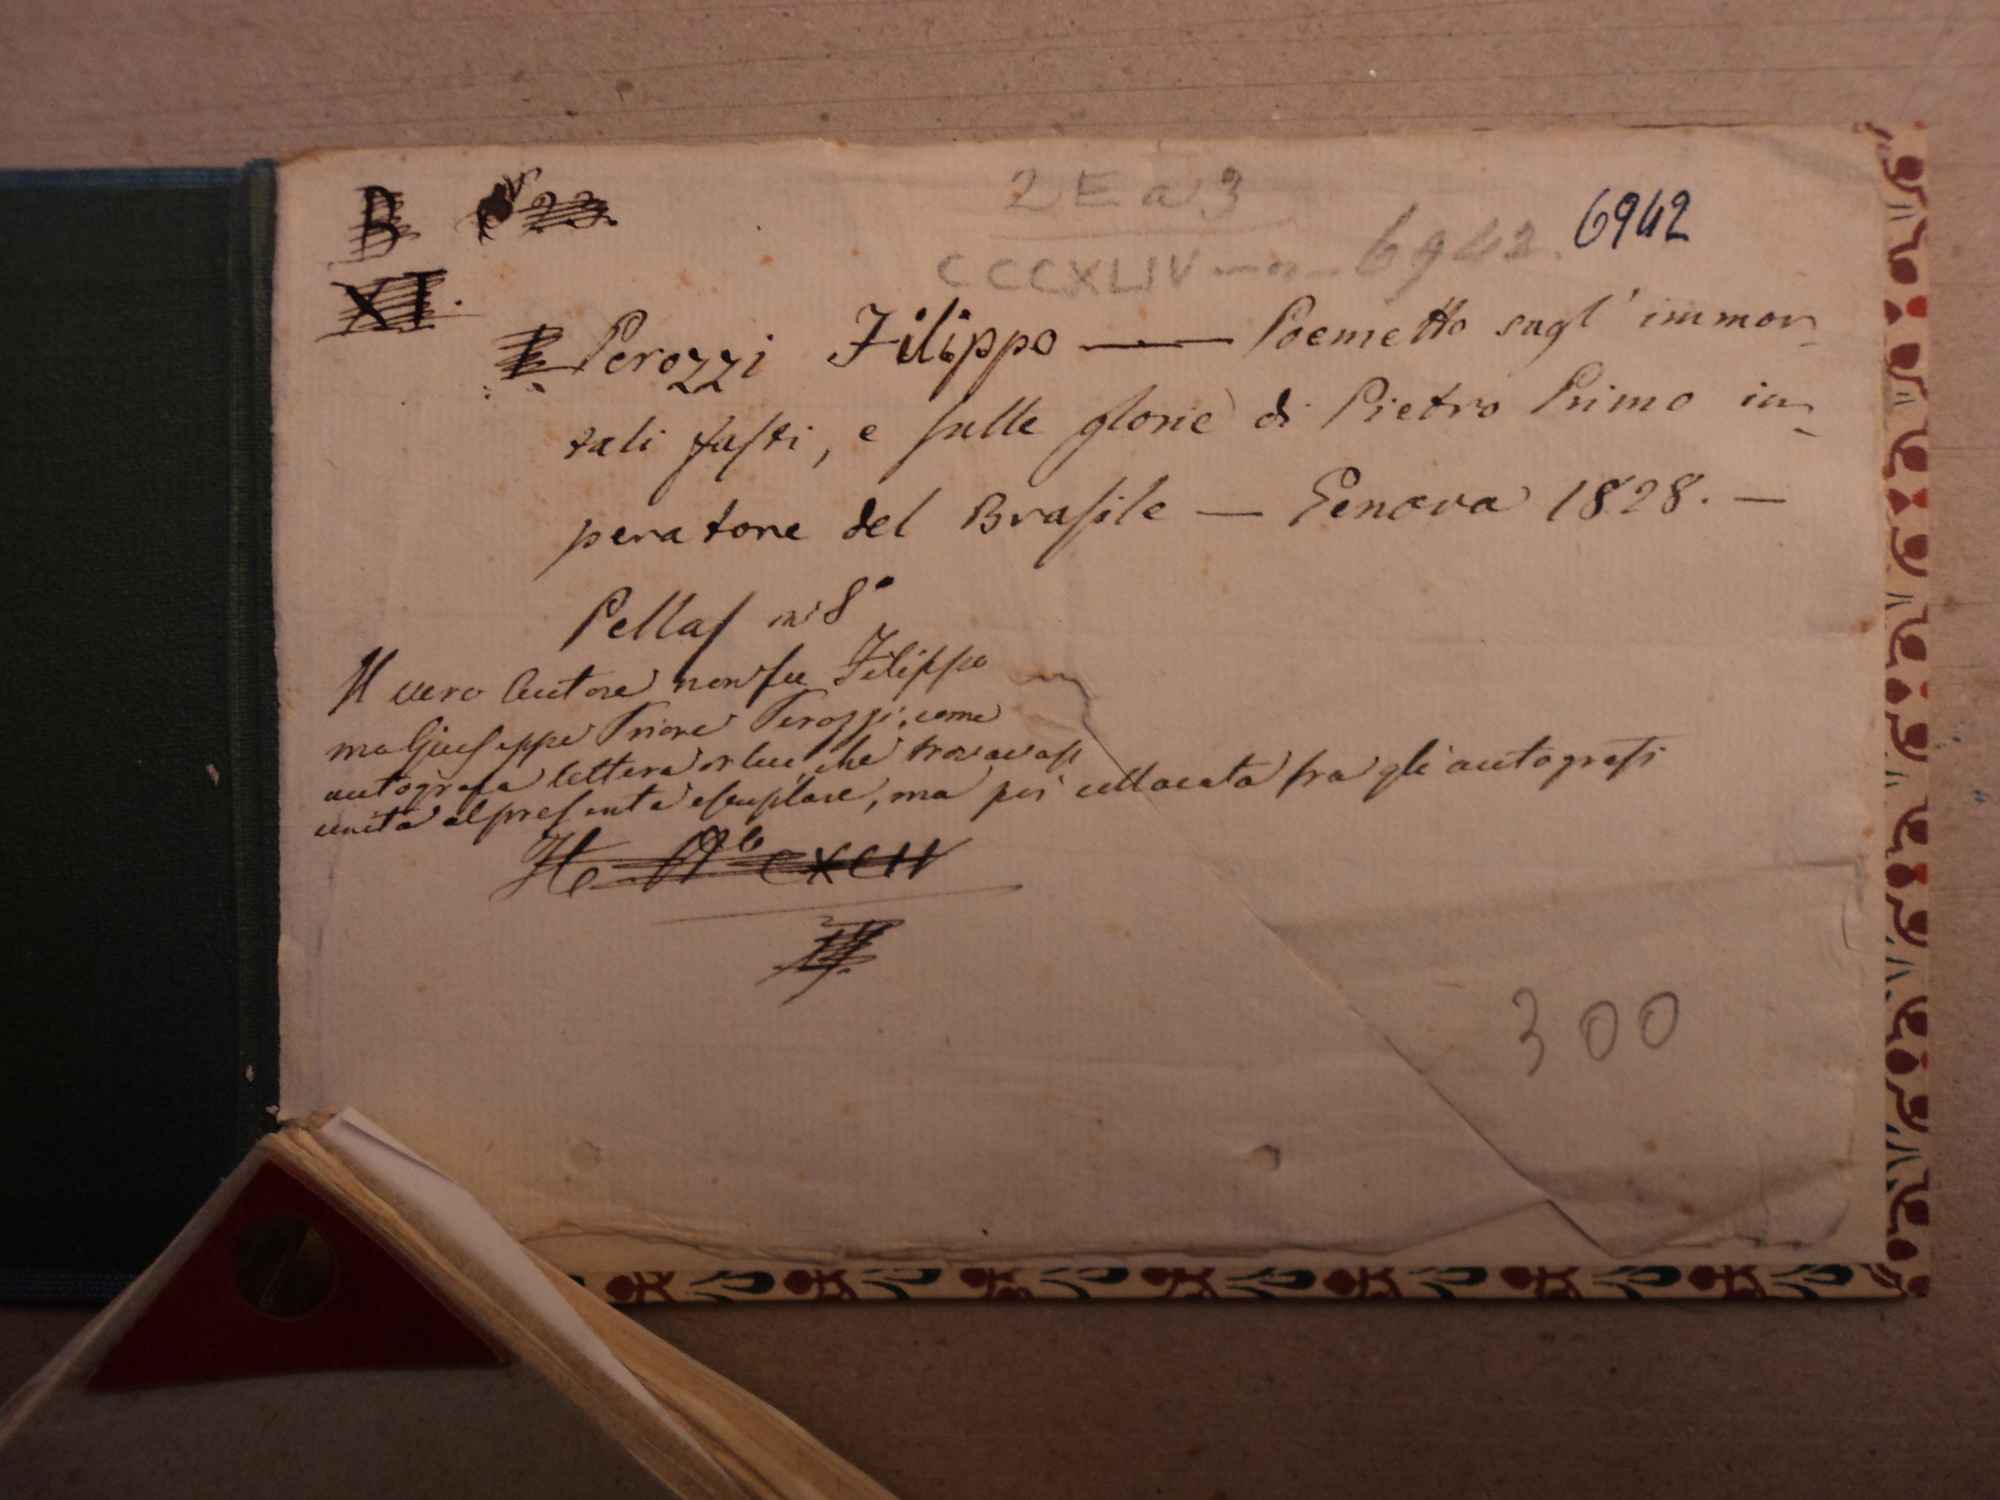 B n° 23.
XI.
2 E a 3
CCCXLIV 6942.
6942
Perozzi Filippo — Poemetto sugl' immor-
tali fasti, e sulle glorie di Pietro Primo im-
peratore del Brasile — Genova 1828. —
Pellas in 8°
Il vero Autore non fu Filippo
ma Giuseppe Priore Perozzi, come
autografa lettera che trovavasi
unita al presente esemplare, ma poi collocata fra gli autografi
CXCII
300